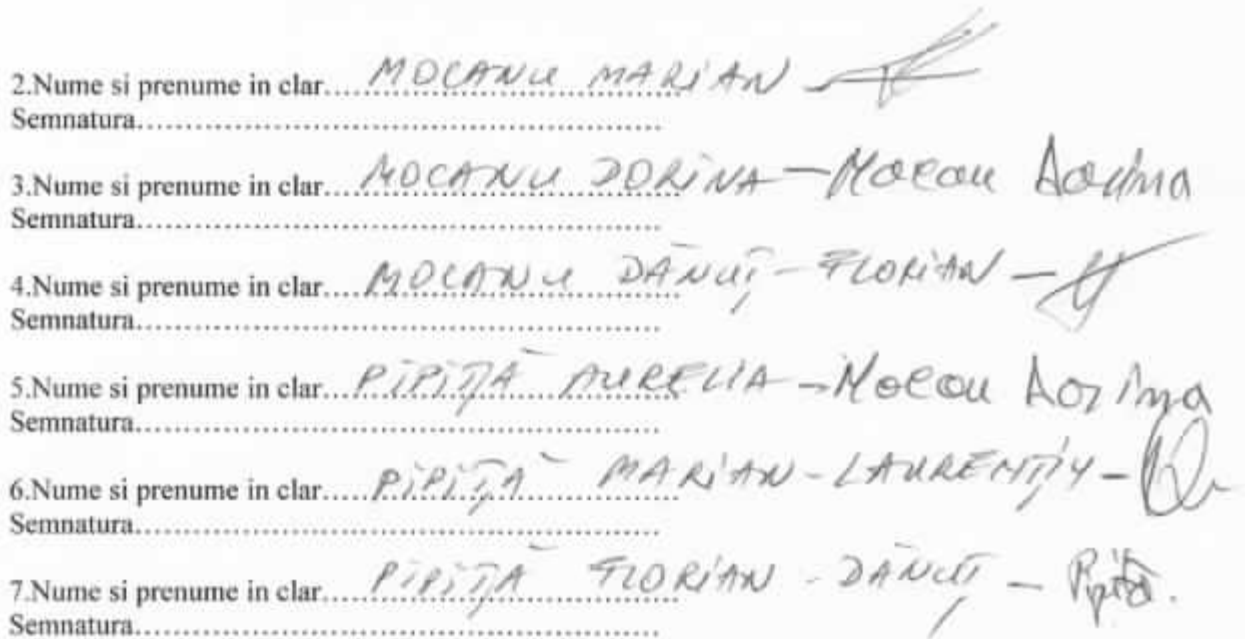 2.Nume si prenume in clar.... MOCANU MARIAN -
Semnatura......................................................
3.Nume si prenume in clar.... MOCANU DORINA - Mocau Dorina
Semnatura......................................................
4.Nume si prenume in clar.... MOCANU DĂNUȚ - FLORIAN -
Semnatura......................................................
5.Nume si prenume in clar.... PIPIȚĂ AURELIA - Mocau Dorina
Semnatura......................................................
6.Nume si prenume in clar.... PIPIȚĂ MARIAN - LAURENȚIU -
Semnatura......................................................
7.Nume si prenume in clar.... PIPIȚĂ FLORIAN - DĂNUȚ - Pipiță.
Semnatura......................................................